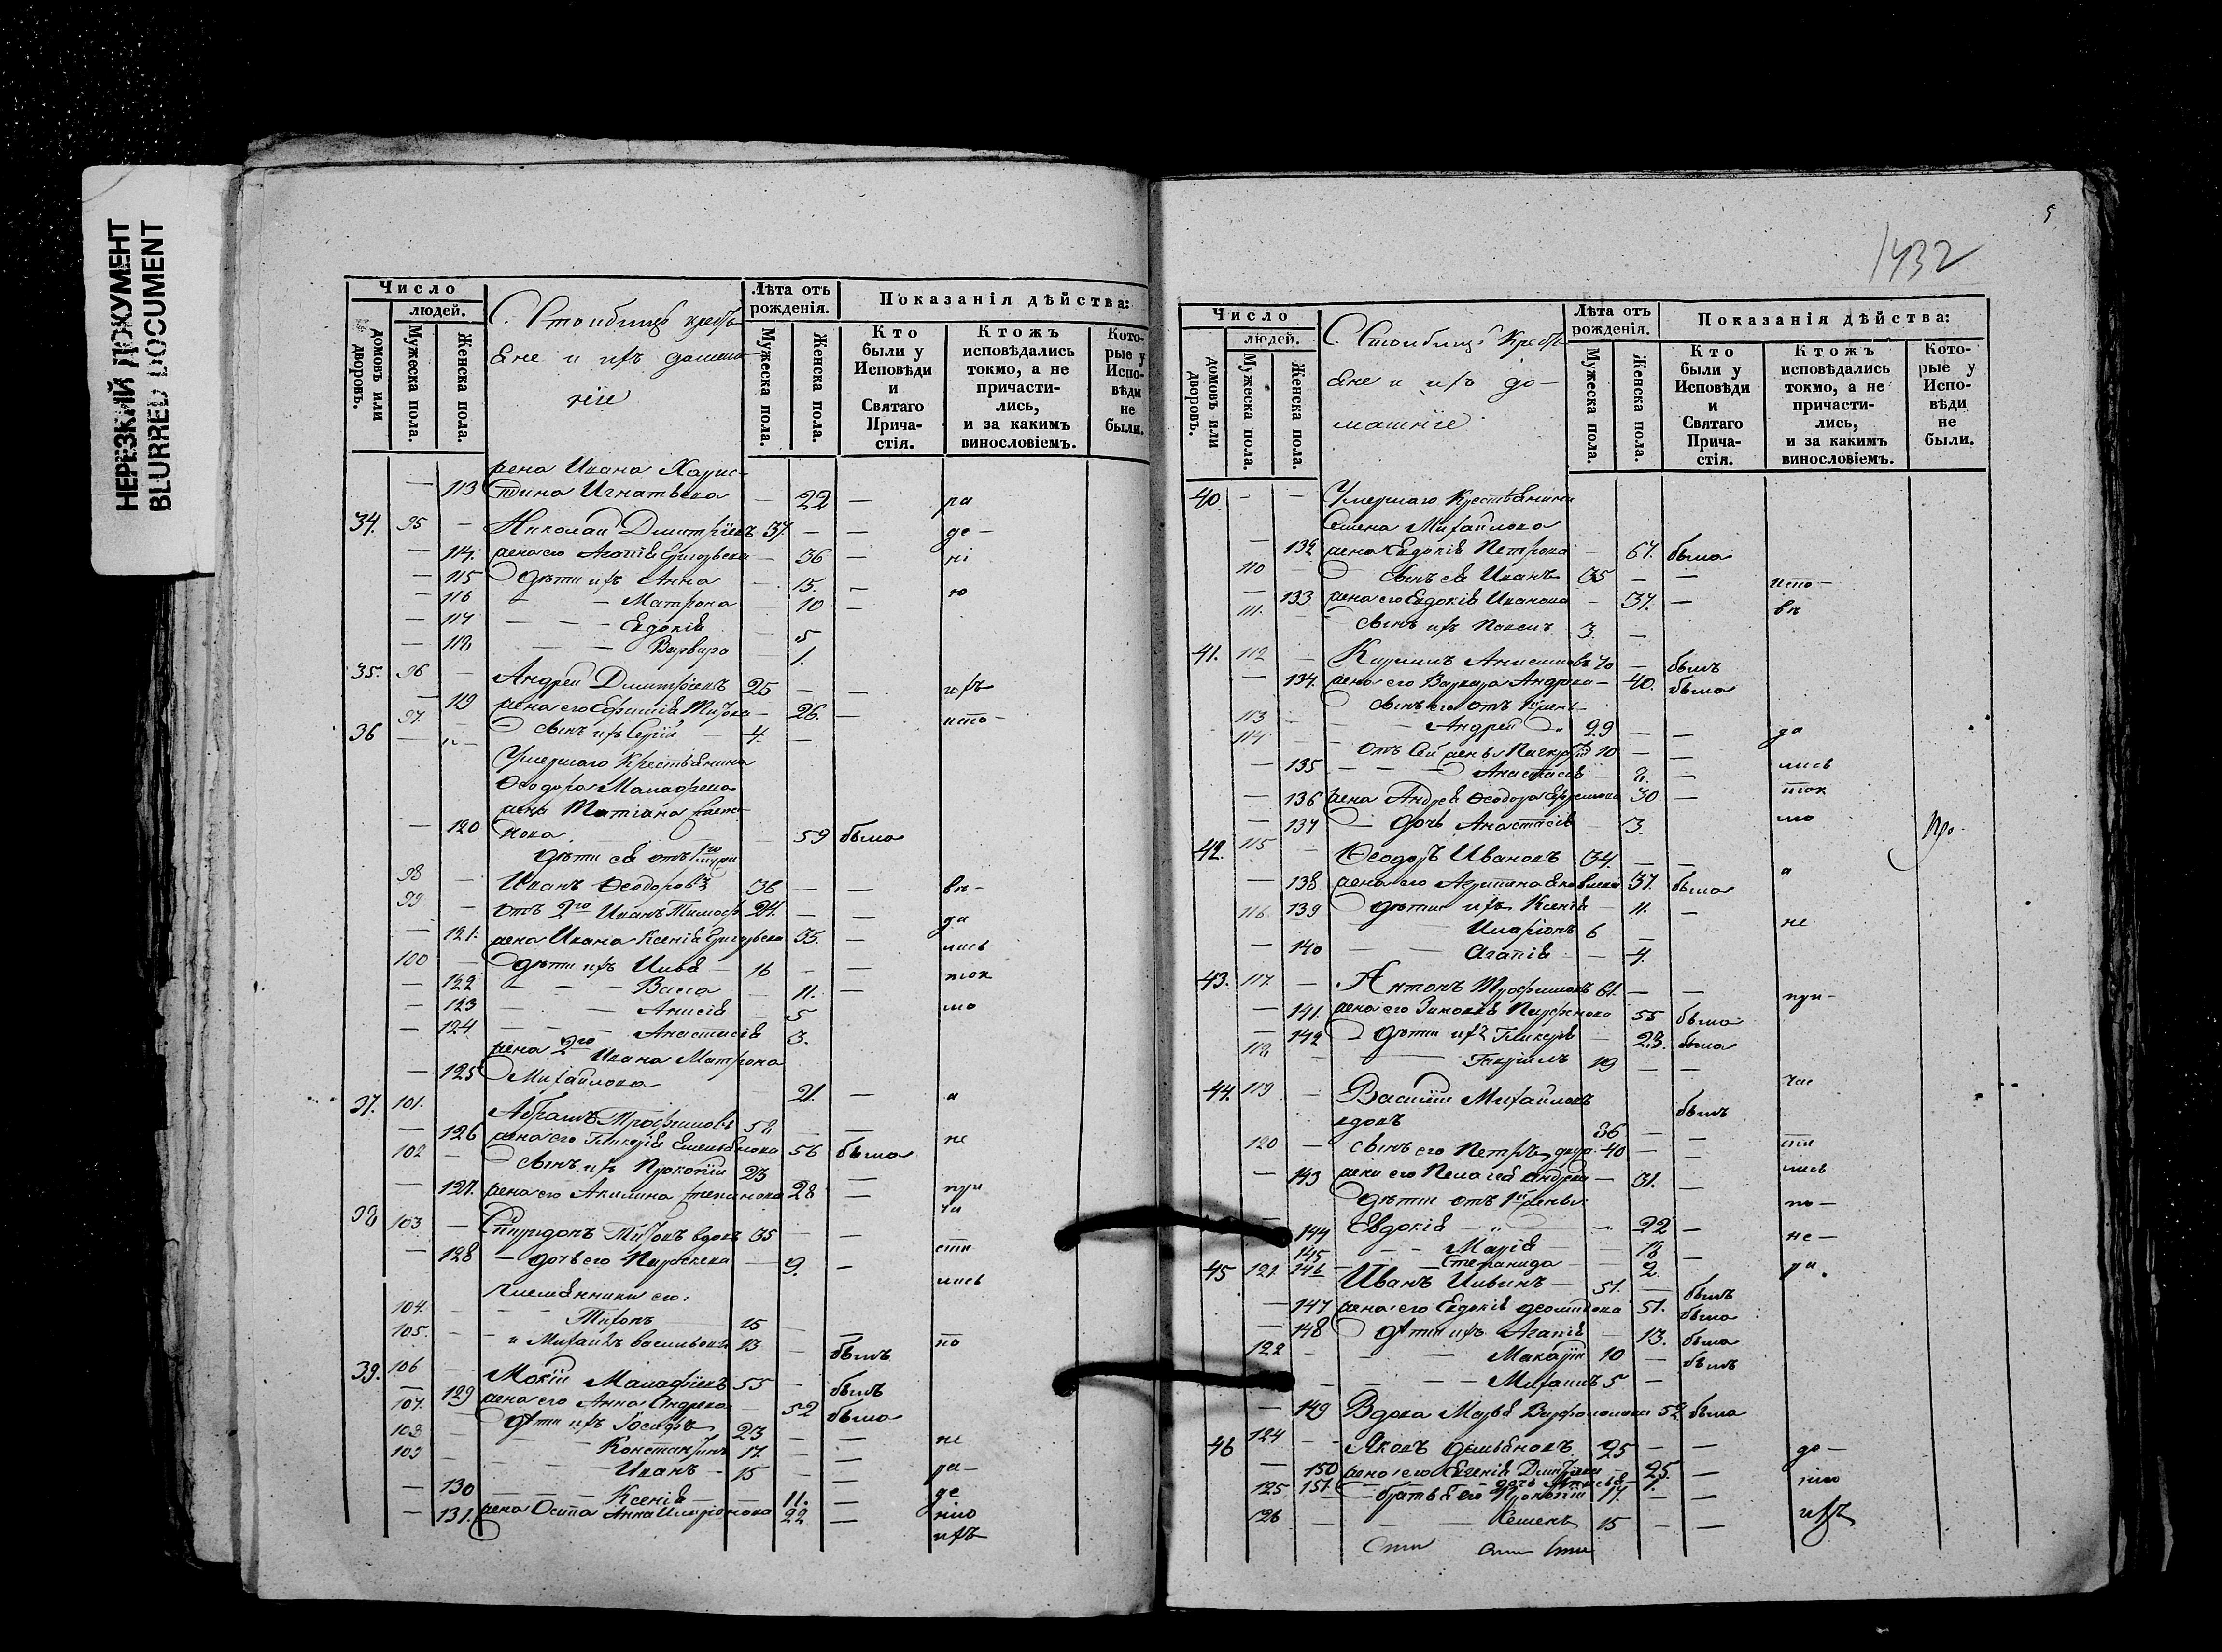 НЕРЕЗКИЙ ДОКУМЕНТ
BLURRED DOCUMENT
Число
людей.
домовъ или дворовъ.
Мужеска пола.
Женска пола.
С. крестья
яне и ихъ домаш
ніе
Лѣта отъ рожденія.
Мужеска пола.
Женска пола.
Показанія дѣйства:
Кто были у Исповѣди и Святаго Прича-стія.
Ктожъ исповѣдались токмо, а не причасти-лись, и за какимъ винословіемъ.
Кото-рые у Испо-вѣди не были.
жена Ивана Харис-
113 тина Игнатьева — 22 — ра
34. 95 — Николай Димитріевъ 37. — — де —
— 114. жена его Агапія Григорьева — 36 — ні
— 115 дѣти ихъ Анна — 15. — ю
— 116 — Матрона — 10 —
— 117 — — Евдокія — 5
— 118 — — Варвара — 1.
35. 96 — Андрей Димитріевъ 25 — — ихъ
— 119 жена его — 26. — испо —
97. — сынъ ихъ Сергій 4. —
36 — Умершаго Крестьянина
Ѳеодора
жена Татіана Степа
— 120 нова — 59 была
дѣти ея отъ 1го мужа
98 — Иванъ Ѳеодоровъ 36 — — вѣ —
99 — отъ 2го Иванъ Тимоф. 24. — — да
— 121. жена Ивана Ксенія Григорьева 35. — лись
100 — дѣти ихъ Илья — 16 — — ток
— 122 — — Васса — 11. — мо
— 123 — — Анисія 5
— 124 — — Анастасія 3.
жена 2го Ивана Матрона
— 125 Михайлова 21. — а
37. 101. Абрамъ Трофимовъ 58 — —
— 126 жена его Гликерія Емельянова 56 была не
102 — сынъ ихъ Прокопій 23 —
— 127. жена его Акилина Степанова 28 — при
38 103 — Спиридонъ Титовъ вдовъ 35 — — ча
— 128 — дочь его Параскева — 9. — сти
Племянники его: лись
104. — Тихонъ 15 — —
105. — и Михаилъ Васильевы 13 — былъ по
39. 106 — Мокій 55 — былъ
— 129 жена его Анна Андреева — 52 была
107. дѣти ихъ Іосифъ 23 — — не
108 — Константинъ 17. — — ра —
109 — Иванъ — 15 — де
— 130 — Ксенія — 11. — нію
— 131. жена Осипа Анна Иларіонова 22 — ихъ
5
1432
Число
людей.
домовъ или дворовъ.
Мужеска пола.
Женска пола.
С. Кресть
яне и ихъ до-
машніе
Лѣта отъ рожденія.
Мужеска пола.
Женска пола.
Показанія дѣйства:
Кто были у Исповѣди и Святаго Прича-стія.
Ктожъ исповѣдались токмо, а не причасти-лись, и за какимъ винословіемъ.
Кото-рые у Испо-вѣди не были.
40. — — Умершаго Крестьянина
Семена Михайлова
— 132 жена Евдокія Петрова — 67. была
110 — сынъ ея Иванъ 35 — — испо —
— 133 жена его Евдокія Иванова — 37. — вѣ
111. сынъ ихъ 3. —
41. 112 — Анисимовъ 70 — былъ
— 134. жена его Варвара Андреева — 40. была
сынъ его отъ 1й жены —
113 — — Андрей 29 — — да
114 — отъ сей жены 10 — —
— 135 — — Анастасія — 8. — лись
— 136 жена Андрея Ѳеодора Ефремова 30 — ток
— 137 — дочь Анастасія 3. мо
42. 115 — Ѳеодоръ Ивановъ 34. — — а
— 138. жена его Агрипина Яковлева 37. была
139 дѣти ихъ Ксенія — 11. —
116 Иларіонъ 6 — не
— 140 — Агапія — 4.
43. 117. — Антонъ Трофимовъ 61. — — при —
— 141. жена его Зиновія 55 была
— 142 дѣти ихъ Гликерія — 23. была
118 — Гавріилъ 19 — — час
44. 119 — Василій Михайловъ былъ
вдовъ 86 —
120 — сынъ его Петръ 40 — — ти
— 143 жена его Пелагея Андреева — 31. — лись
дѣти отъ 1й жены по —
— 144 Евдокія — 22 — не —
145 — — Марія — 18 —
146 — Степанида — 2. ра
45 121. Иванъ Ильинъ — 51. — былъ
— 147 жена его Евдокія 51. была
— 148 дѣти ихъ Агапія — 13. была
122 — — Макарій 10 — былъ
— — Михаилъ 5 —
— 149 Вдова Марья 52 была
46 124 — Яковъ Демьяновъ 25 — — де —
— 150 жена его Евгенія 25. — нію
151. дочь 1.
125 — братья его Прокопій 17. — — ихъ
126 — — Семенъ 15 — —